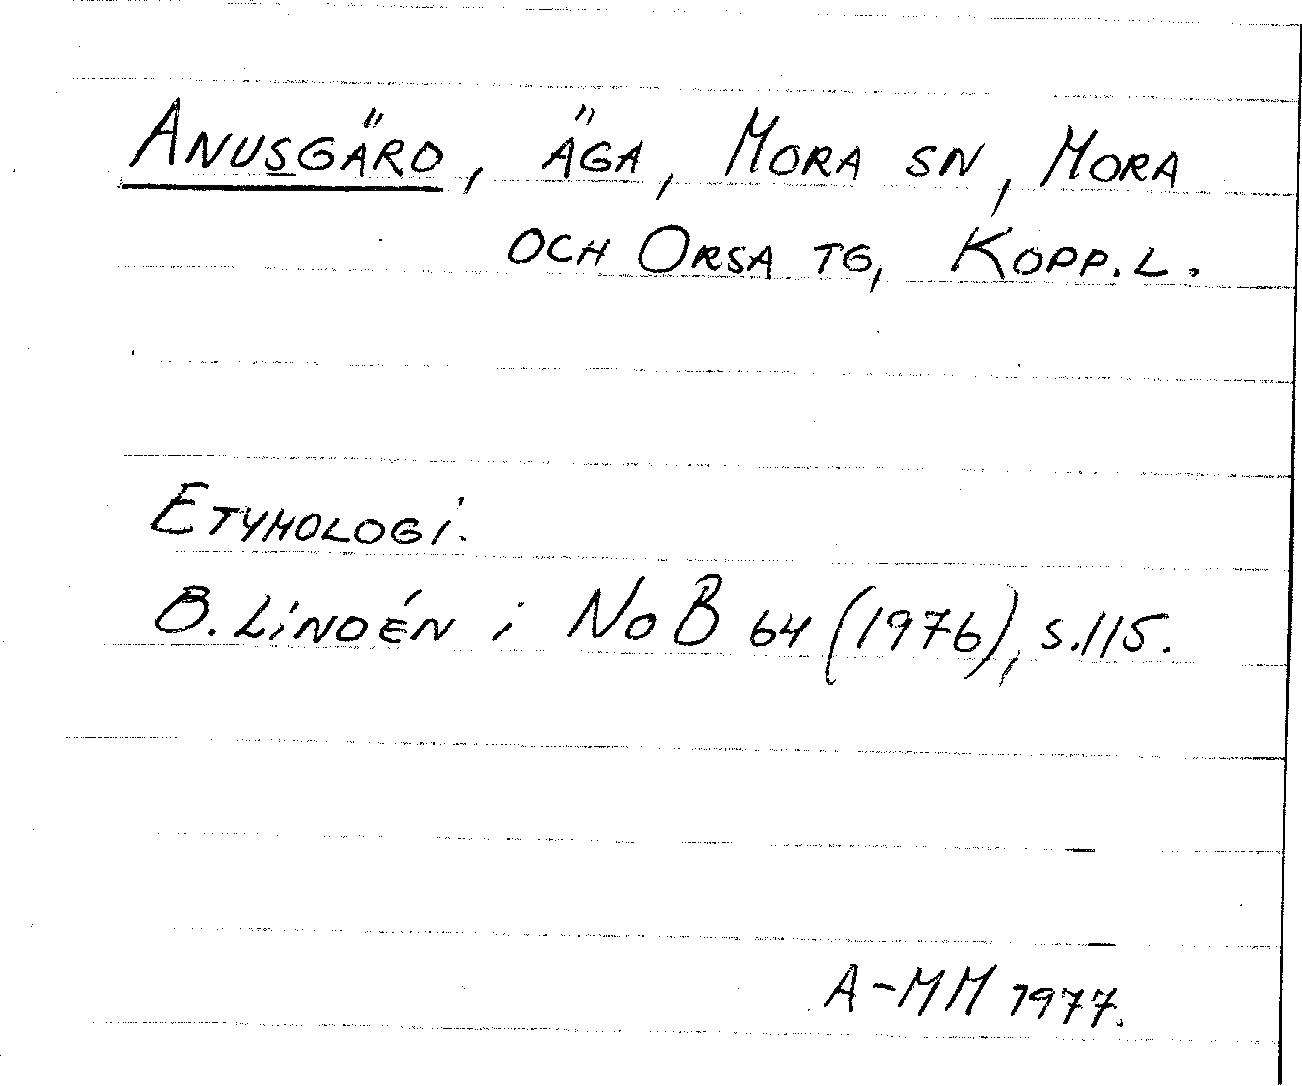 ANUSGÄRD, ÄGA, MORA SN, MORA
OCH ORSA TG, KOPP. L.
ETYMOLOGI.
B. LINDÉN i NoB 64 (1976), S. 115.
A-MM 1977.